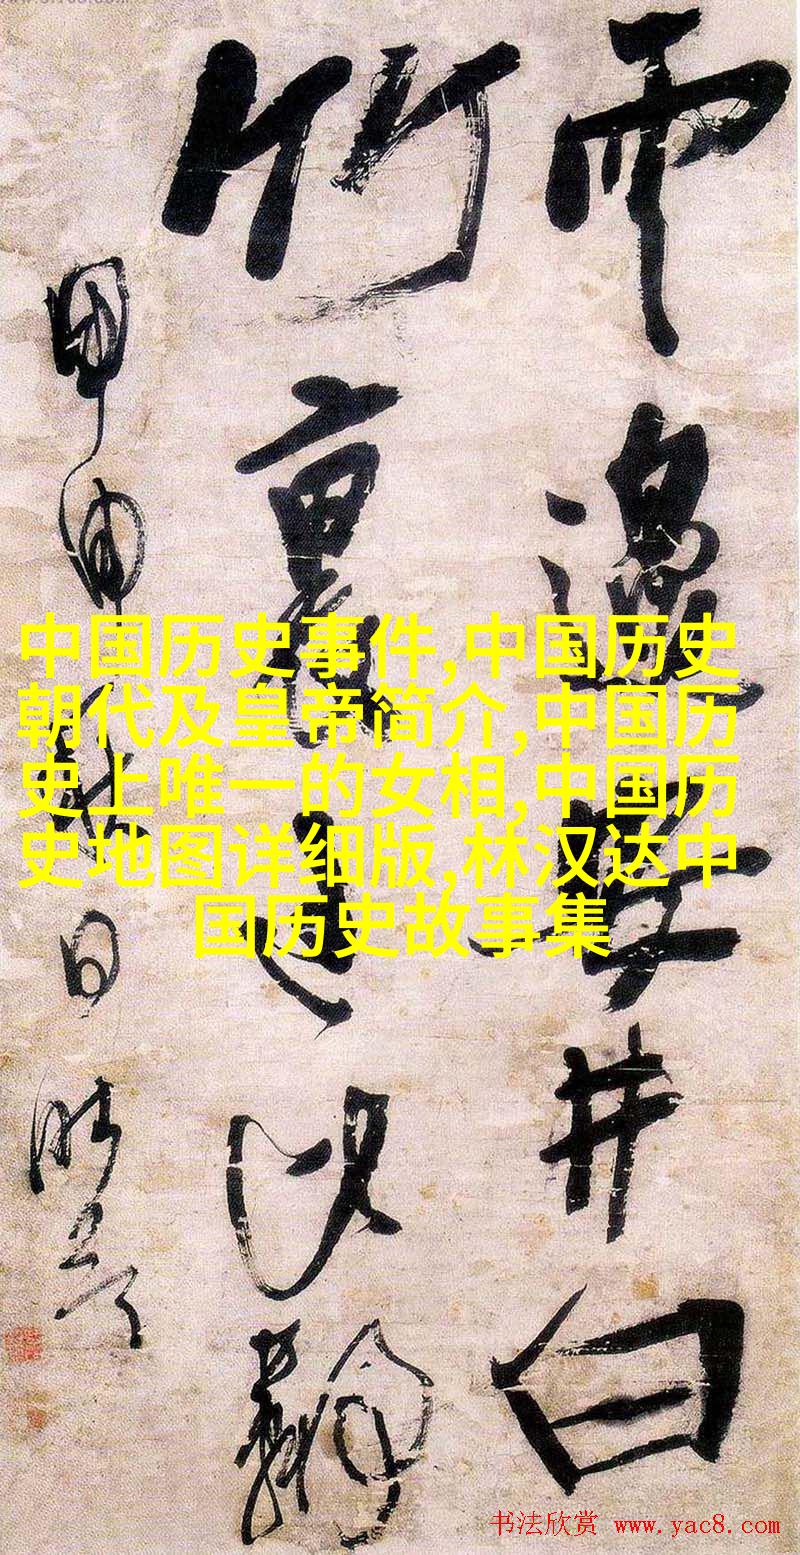 中国历史事件,中国历史
朝代及皇帝简介,中国历
史上唯一的女相,中国历
史地图详细版,林汉达中
国历史故事集
邊安井臼
竹裏
甲申秋日
书法欣赏 www.yac8.com